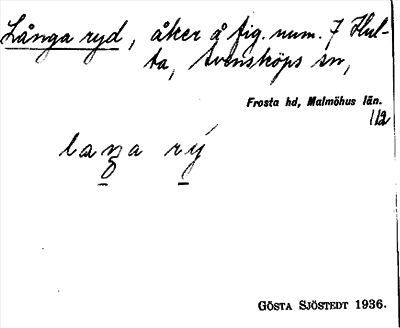 Långa ryd, åker å fig. num. 7 Hul-
ta, Svensköps sn,
Frosta hd, Malmöhus län.
1/12
laŋa rý
GÖSTA SJÖSTEDT 1936.